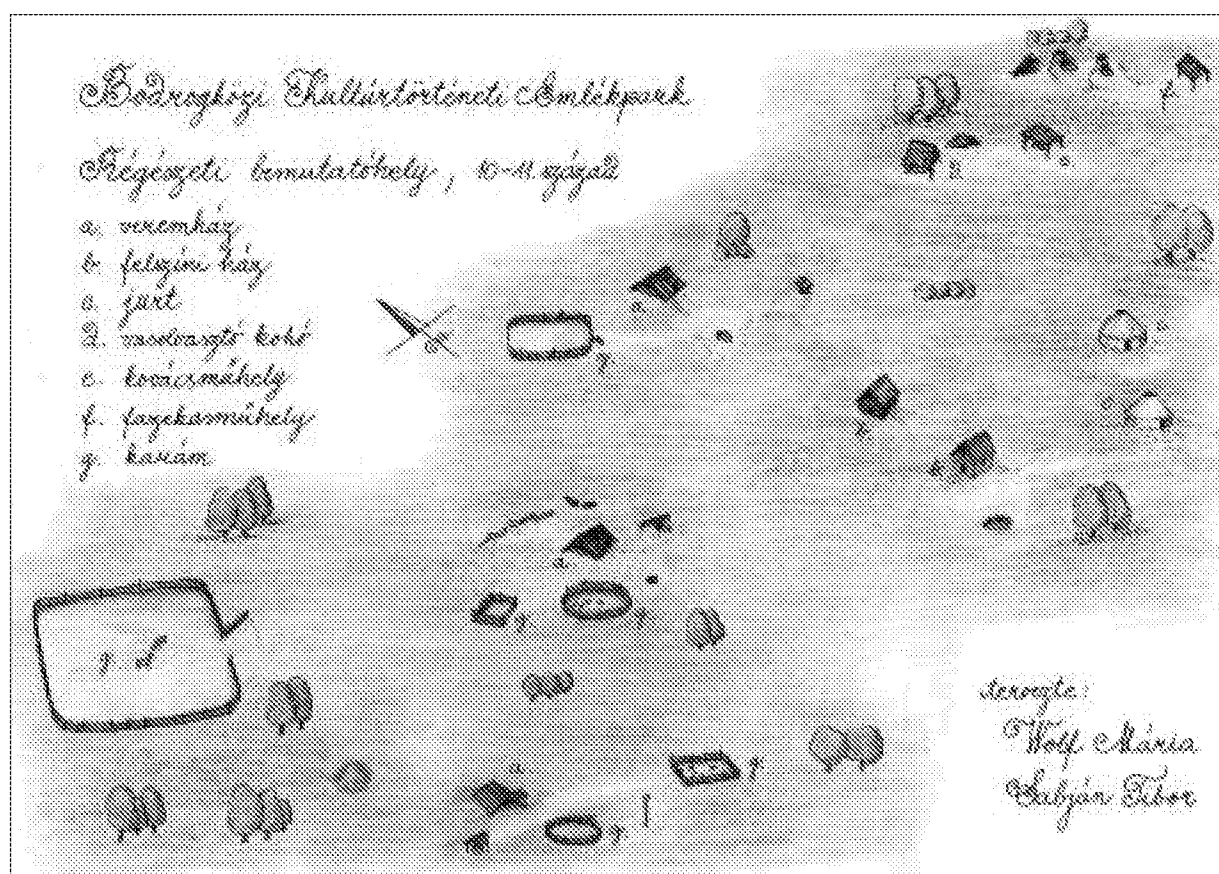 Bodrogközi Kultúrtörténeti Emlékpark
Régészeti bemutatóhely, 10-11. század
a. veremház
b. felszíni ház
c. jurt
d. vasolvasztó kohó
e. kovácsműhely
f. fazekasműhely
g. karám
tervezte:
Wolf Mária
Sabján Tibor